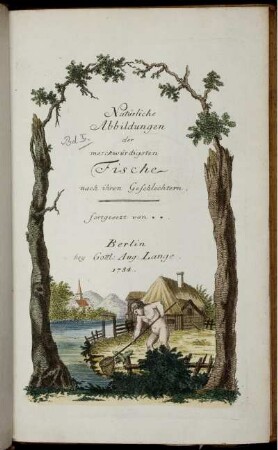 Natürliche
Abbildungen
der
merckwürdigsten
Fische
nach ihren Geschlechtern.
fortgesezt von • •
Berlin
bey Gottl: Aug. Lange.
1784.